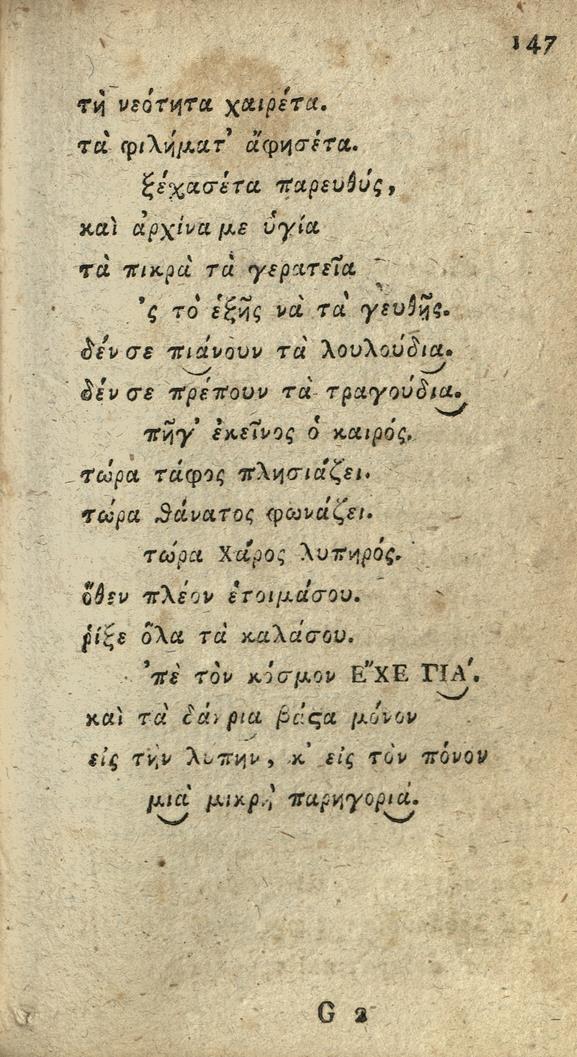 147
τὴ νεότητα χαιρέτα.
τὰ φιλήματ' ἄφησέτα.
ξέχασέτα παρευθύς,
καὶ ἀρχίνα με ὑγία
τὰ πικρὰ τὰ γερατεῖα
'ς τὸ ἑξῆς νὰ τὰ γευθῇς.
δέν σε πιάνουν τὰ λουλούδια.
δέν σε πρέπουν τὰ τραγούδια.
πῆγ' ἐκεῖνος ὁ καιρός.
τώρα τάφος πλησιάζει.
τώρα θάνατος φωνάζει.
τώρα Χάρος λυπηρός.
ὅθεν πλέον ἑτοιμάσου.
ῥίξε ὅλα τὰ καλάσου.
'πὲ τὸν κόσμον ἜΧΕ ΓΙΆ.
καὶ τὰ δάκρια βάςα μόνον
εἰς τὴν λυπην, κ' εἰς τὸν πόνον
μιὰ μικρὴ παρηγοριά.
G 2